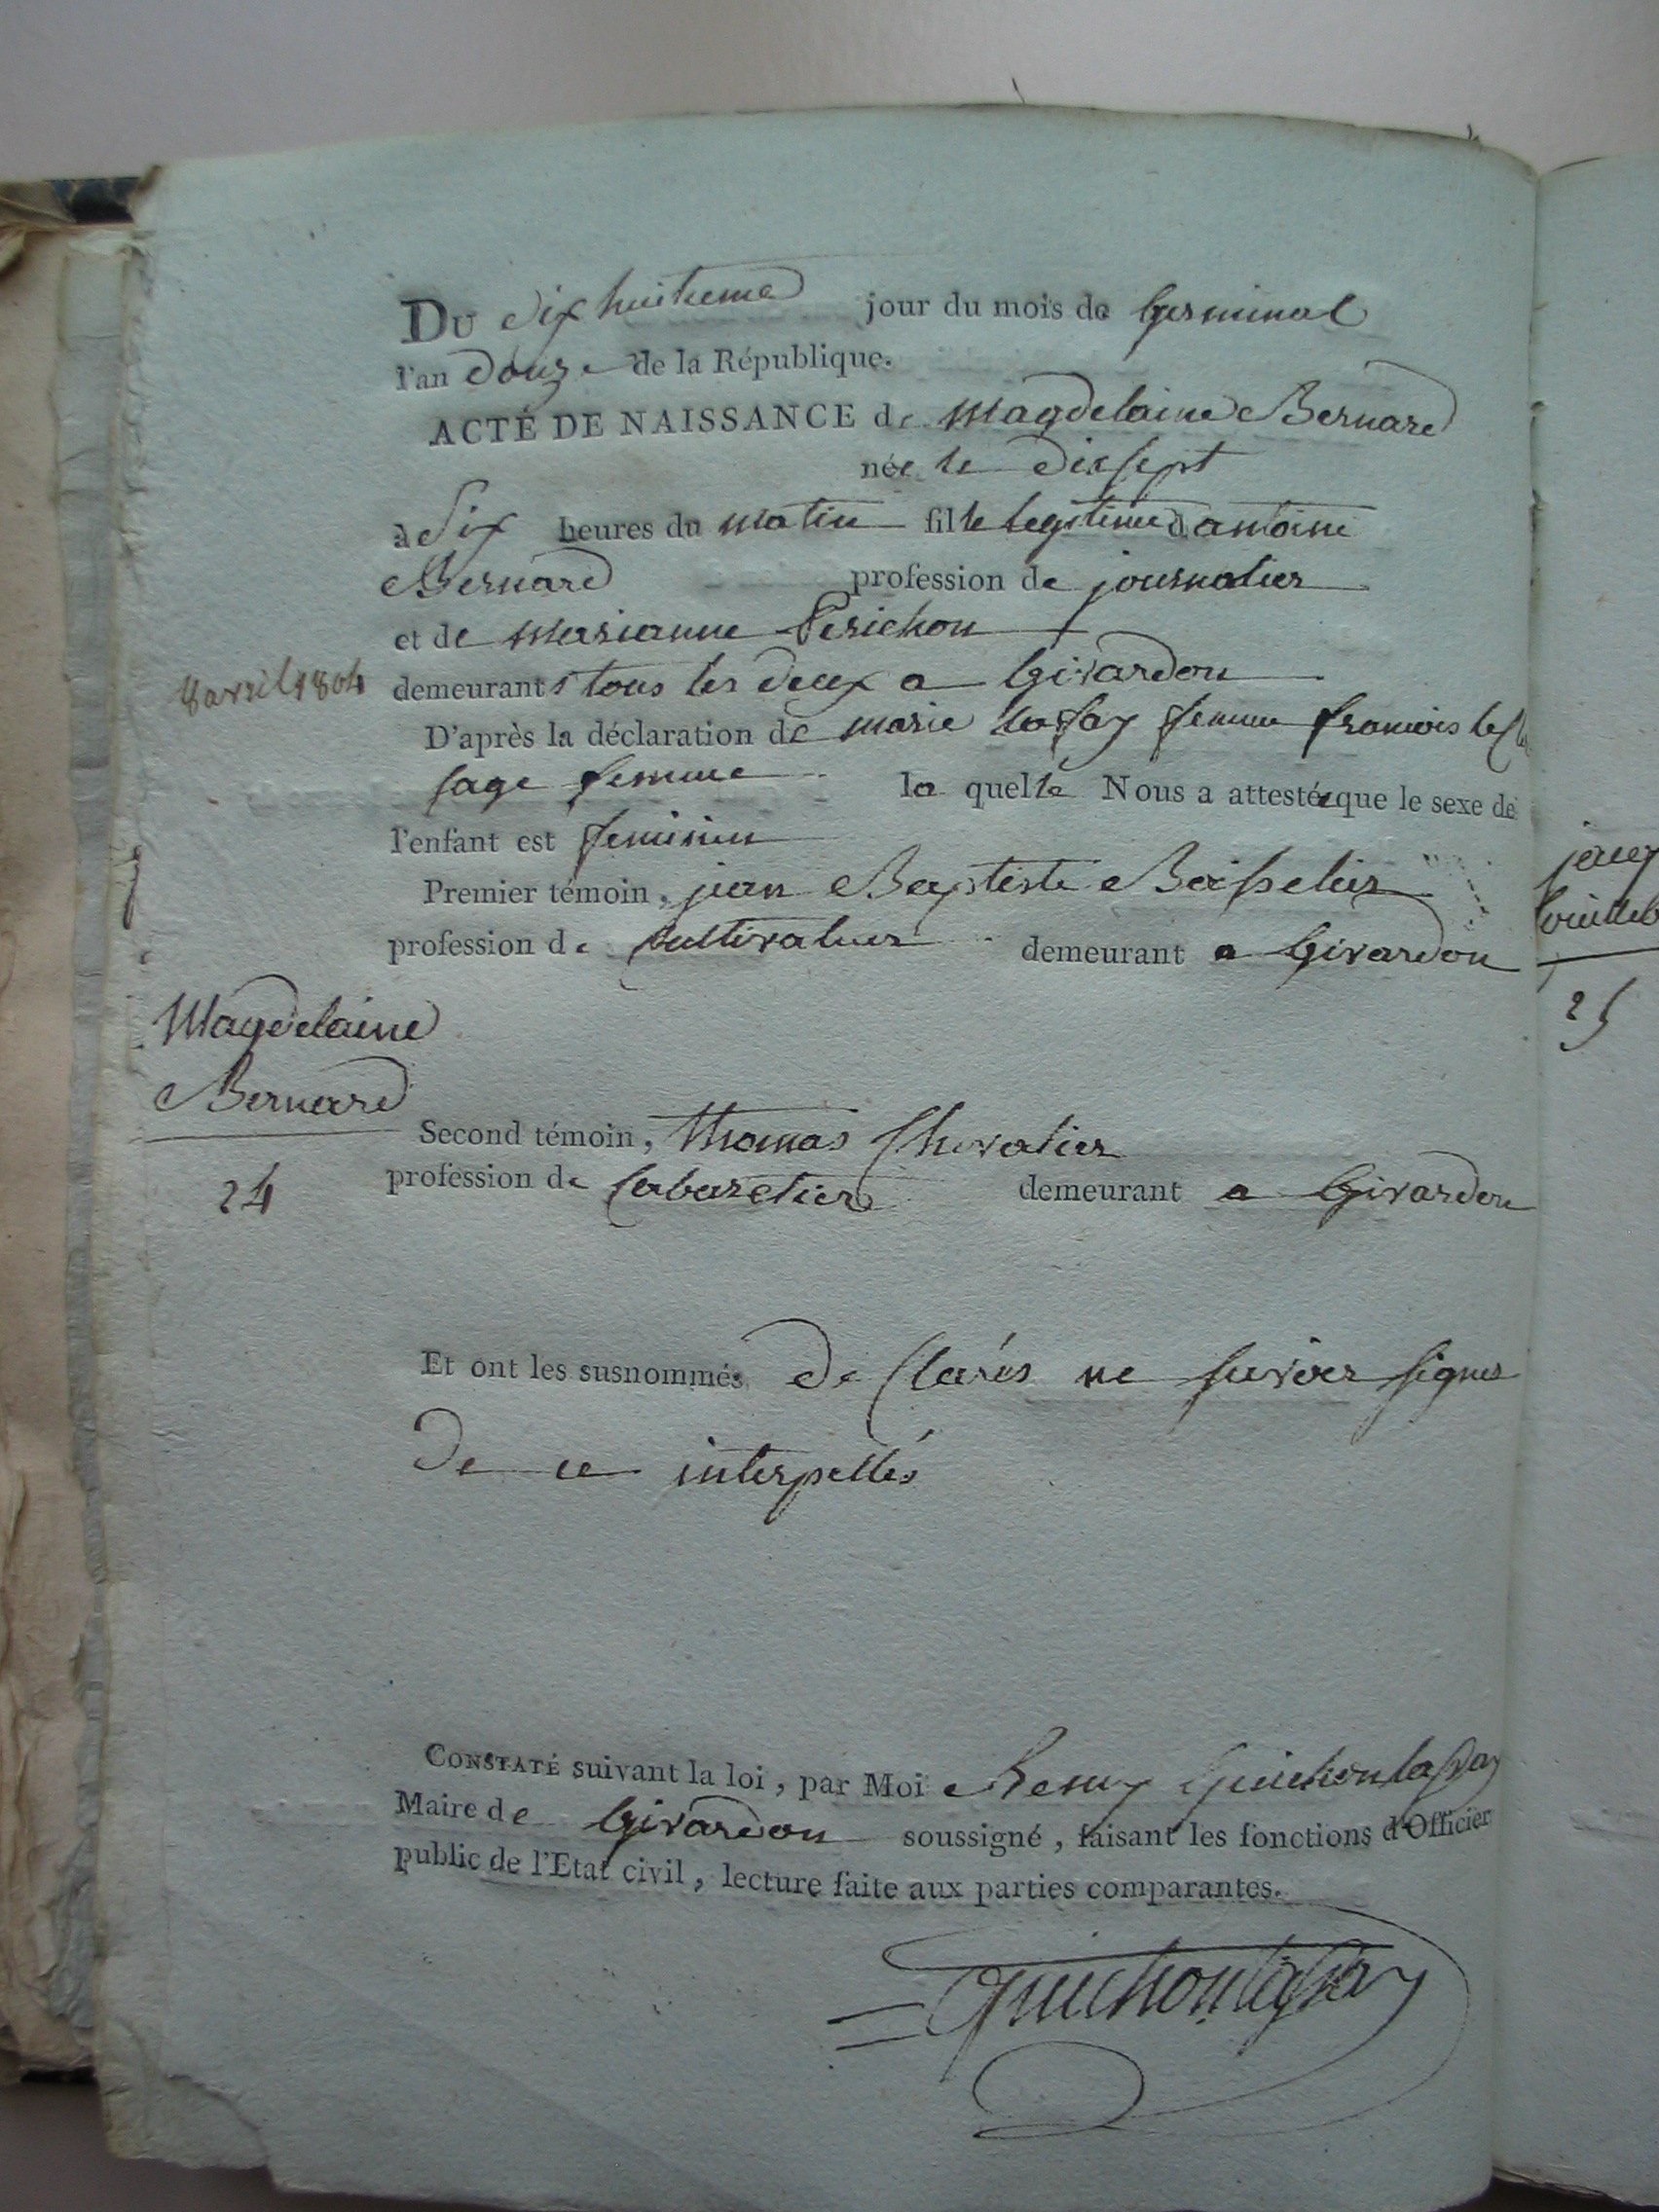 Du dix huitieme jour du mois de Germinal
l'an douze de la République.
ACTE DE NAISSANCE de Magdelaine Bernard
née le dix sept
à Six heures du matin fille legitime d'antoine
Bernard profession de journalier
et de marianne Perichon
8 avril 1804
demeurants tous les deux a Givardon
D'après la déclaration de marie lafay femme francois
sage femme la quelle Nous a attestée que le sexe de
l'enfant est feminin
Premier témoin, jean Baptiste
profession de Cultivateur demeurant a Givardon
Magdelaine
Bernard
24
Second témoin, thomas Chevalier
profession de Cabaretier demeurant a Givardon
Et ont les susnommés declarés ne savoir signer
De ce interpellés
CONSTATÉ suivant la loi, par Moi Remy
Maire de Givardon soussigné, faisant les fonctions d'Officier
public de l'Etat civil, lecture faite aux parties comparantes.
25